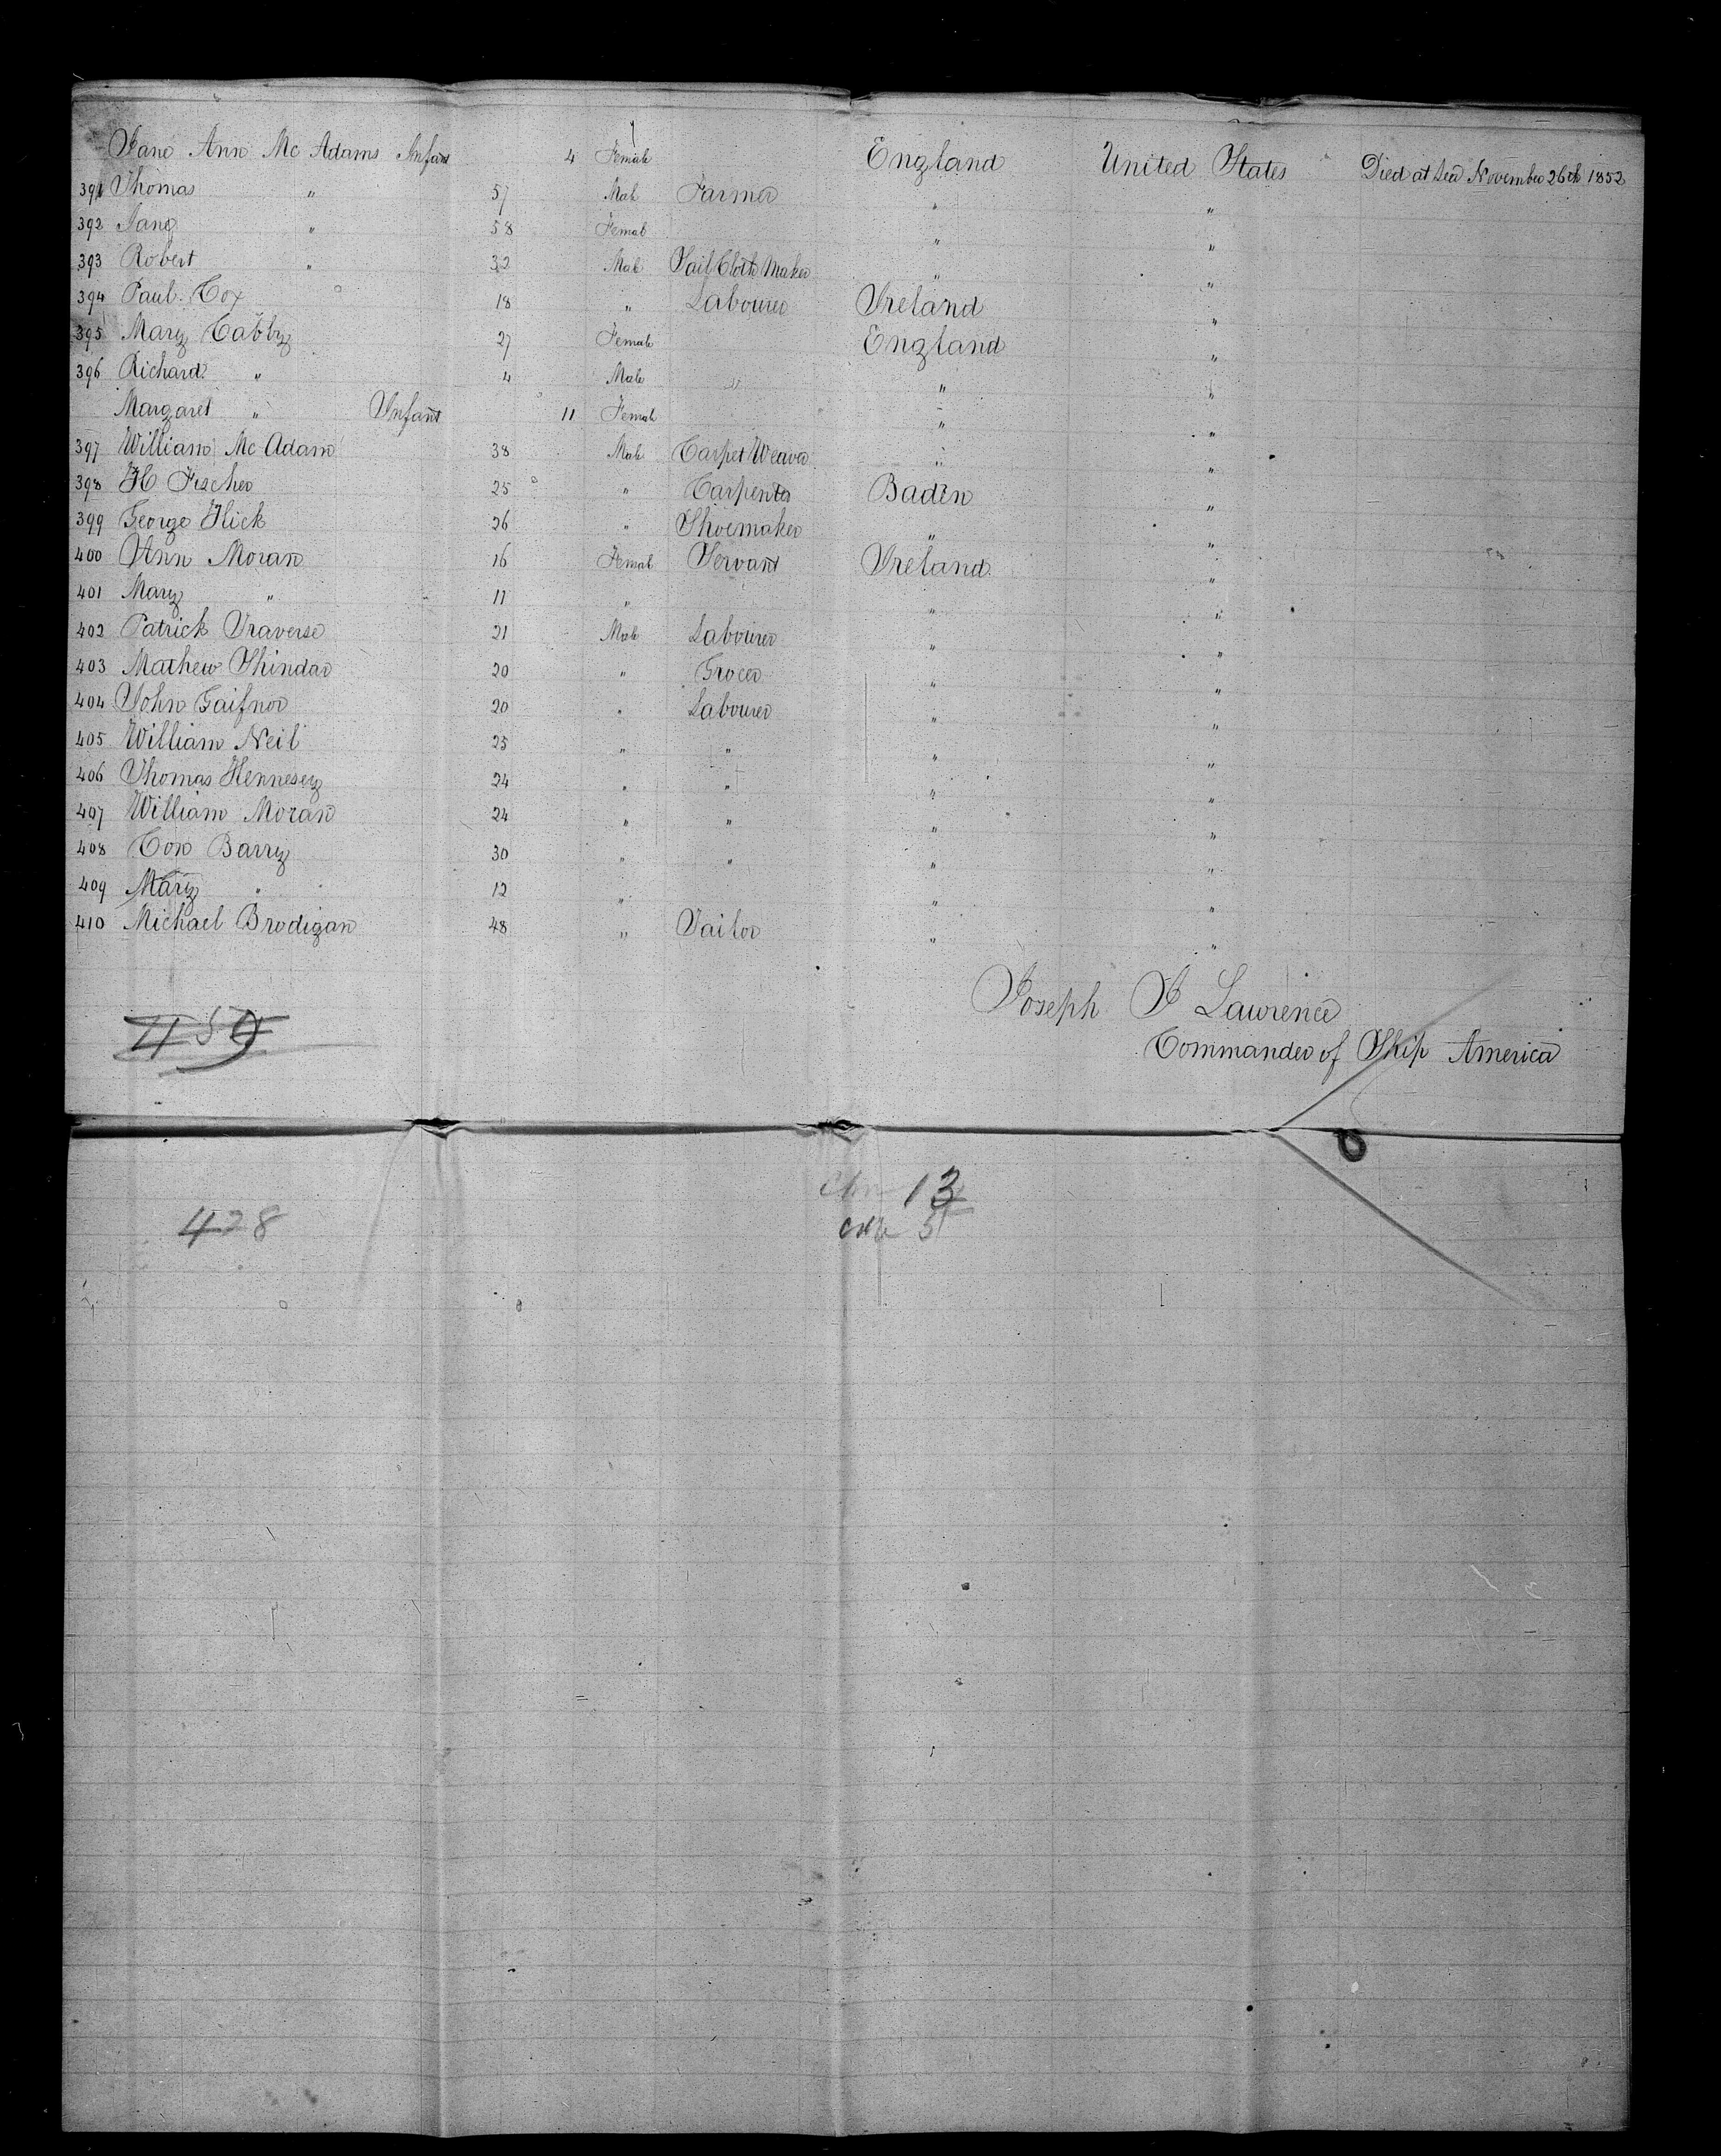 Jane Ann Mc Adams Infant 4 Female England United States Died at Sea November 26th 1852
391 Thomas " 57 Male Farmer " "
392 Jane " 58 Female " "
393 Robert " 32 Male Sail Cloth Maker " "
394 Paul Cox 18 " Labourer Ireland "
395 Mary Cabby 27 Female England "
396 Richard " 4 Male " "
Margaret " Infant 11 Female " "
397 William Mc Adam 38 Male Carpet Weaver " "
398 H Fischer 25 " Carpenter Baden "
399 George Hick 26 " Shoemaker " "
400 Ann Moran 16 Female Servant Ireland "
401 Mary " 11 " " "
402 Patrick Traverse 21 Male Labourer " "
403 Mathew Shindar 20 " Grocer " "
404 John Gaifnor 20 " Labourer " "
405 William Neil 25 " " " "
406 Thomas Hennesey 24 " " " "
407 William Moran 24 " " " "
408 Con Barry 30 " " " "
409 Mary " 12 " " "
410 Michael Brodigan 48 " Tailor " "
Joseph J Lawrence
Commander of Ship America
13
428
5